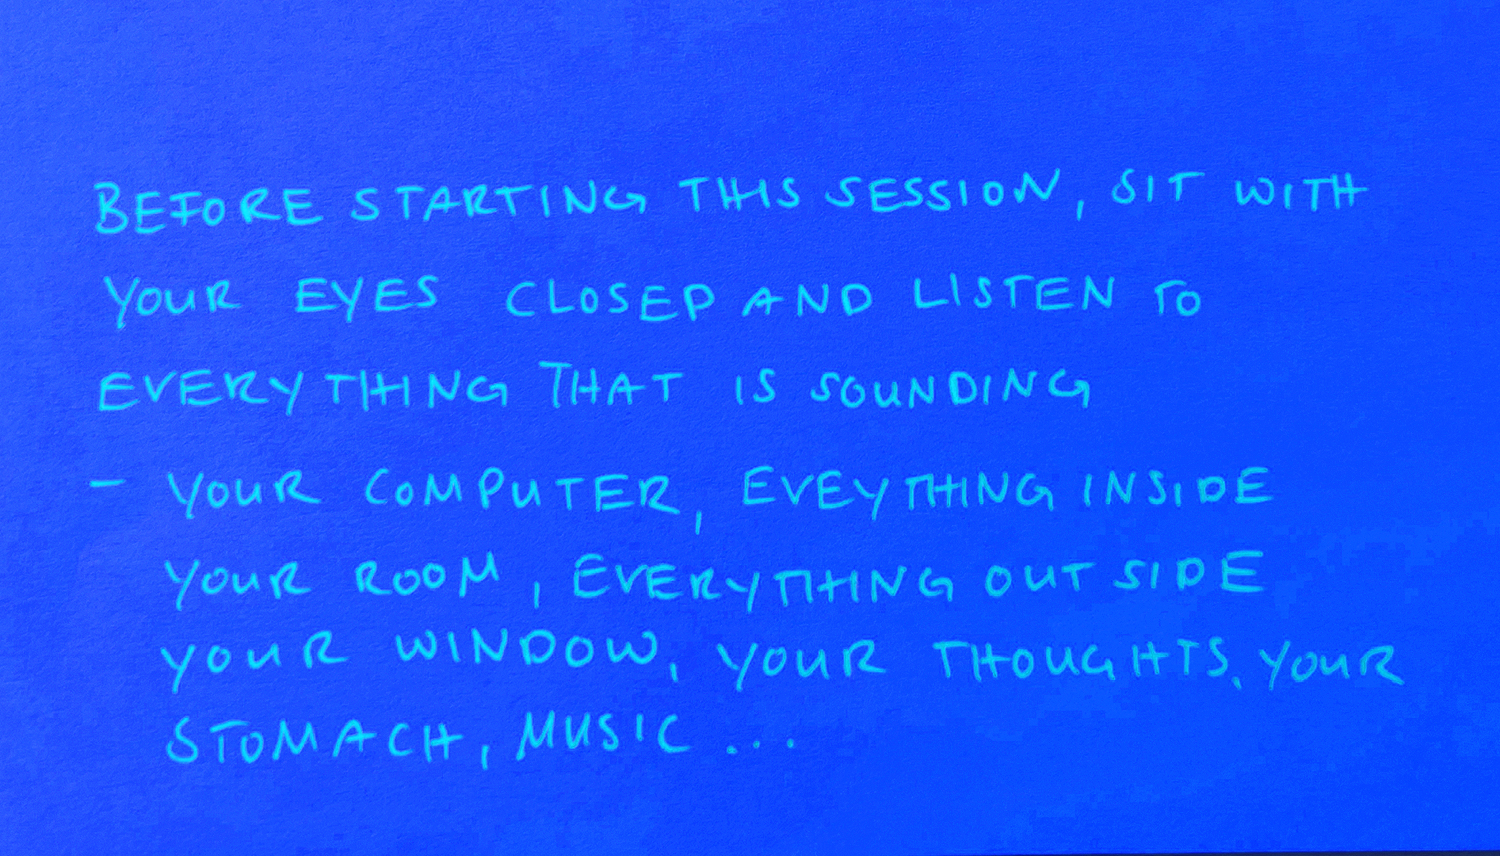 BEFORE STARTING THIS SESSION, SIT WITH
YOUR EYES CLOSED AND LISTEN TO
EVERYTHING THAT IS SOUNDING
- YOUR COMPUTER, EVEYTHING INSIDE
YOUR ROOM, EVERYTHING OUTSIDE
YOUR WINDOW, YOUR THOUGHTS, YOUR
STOMACH, MUSIC ...